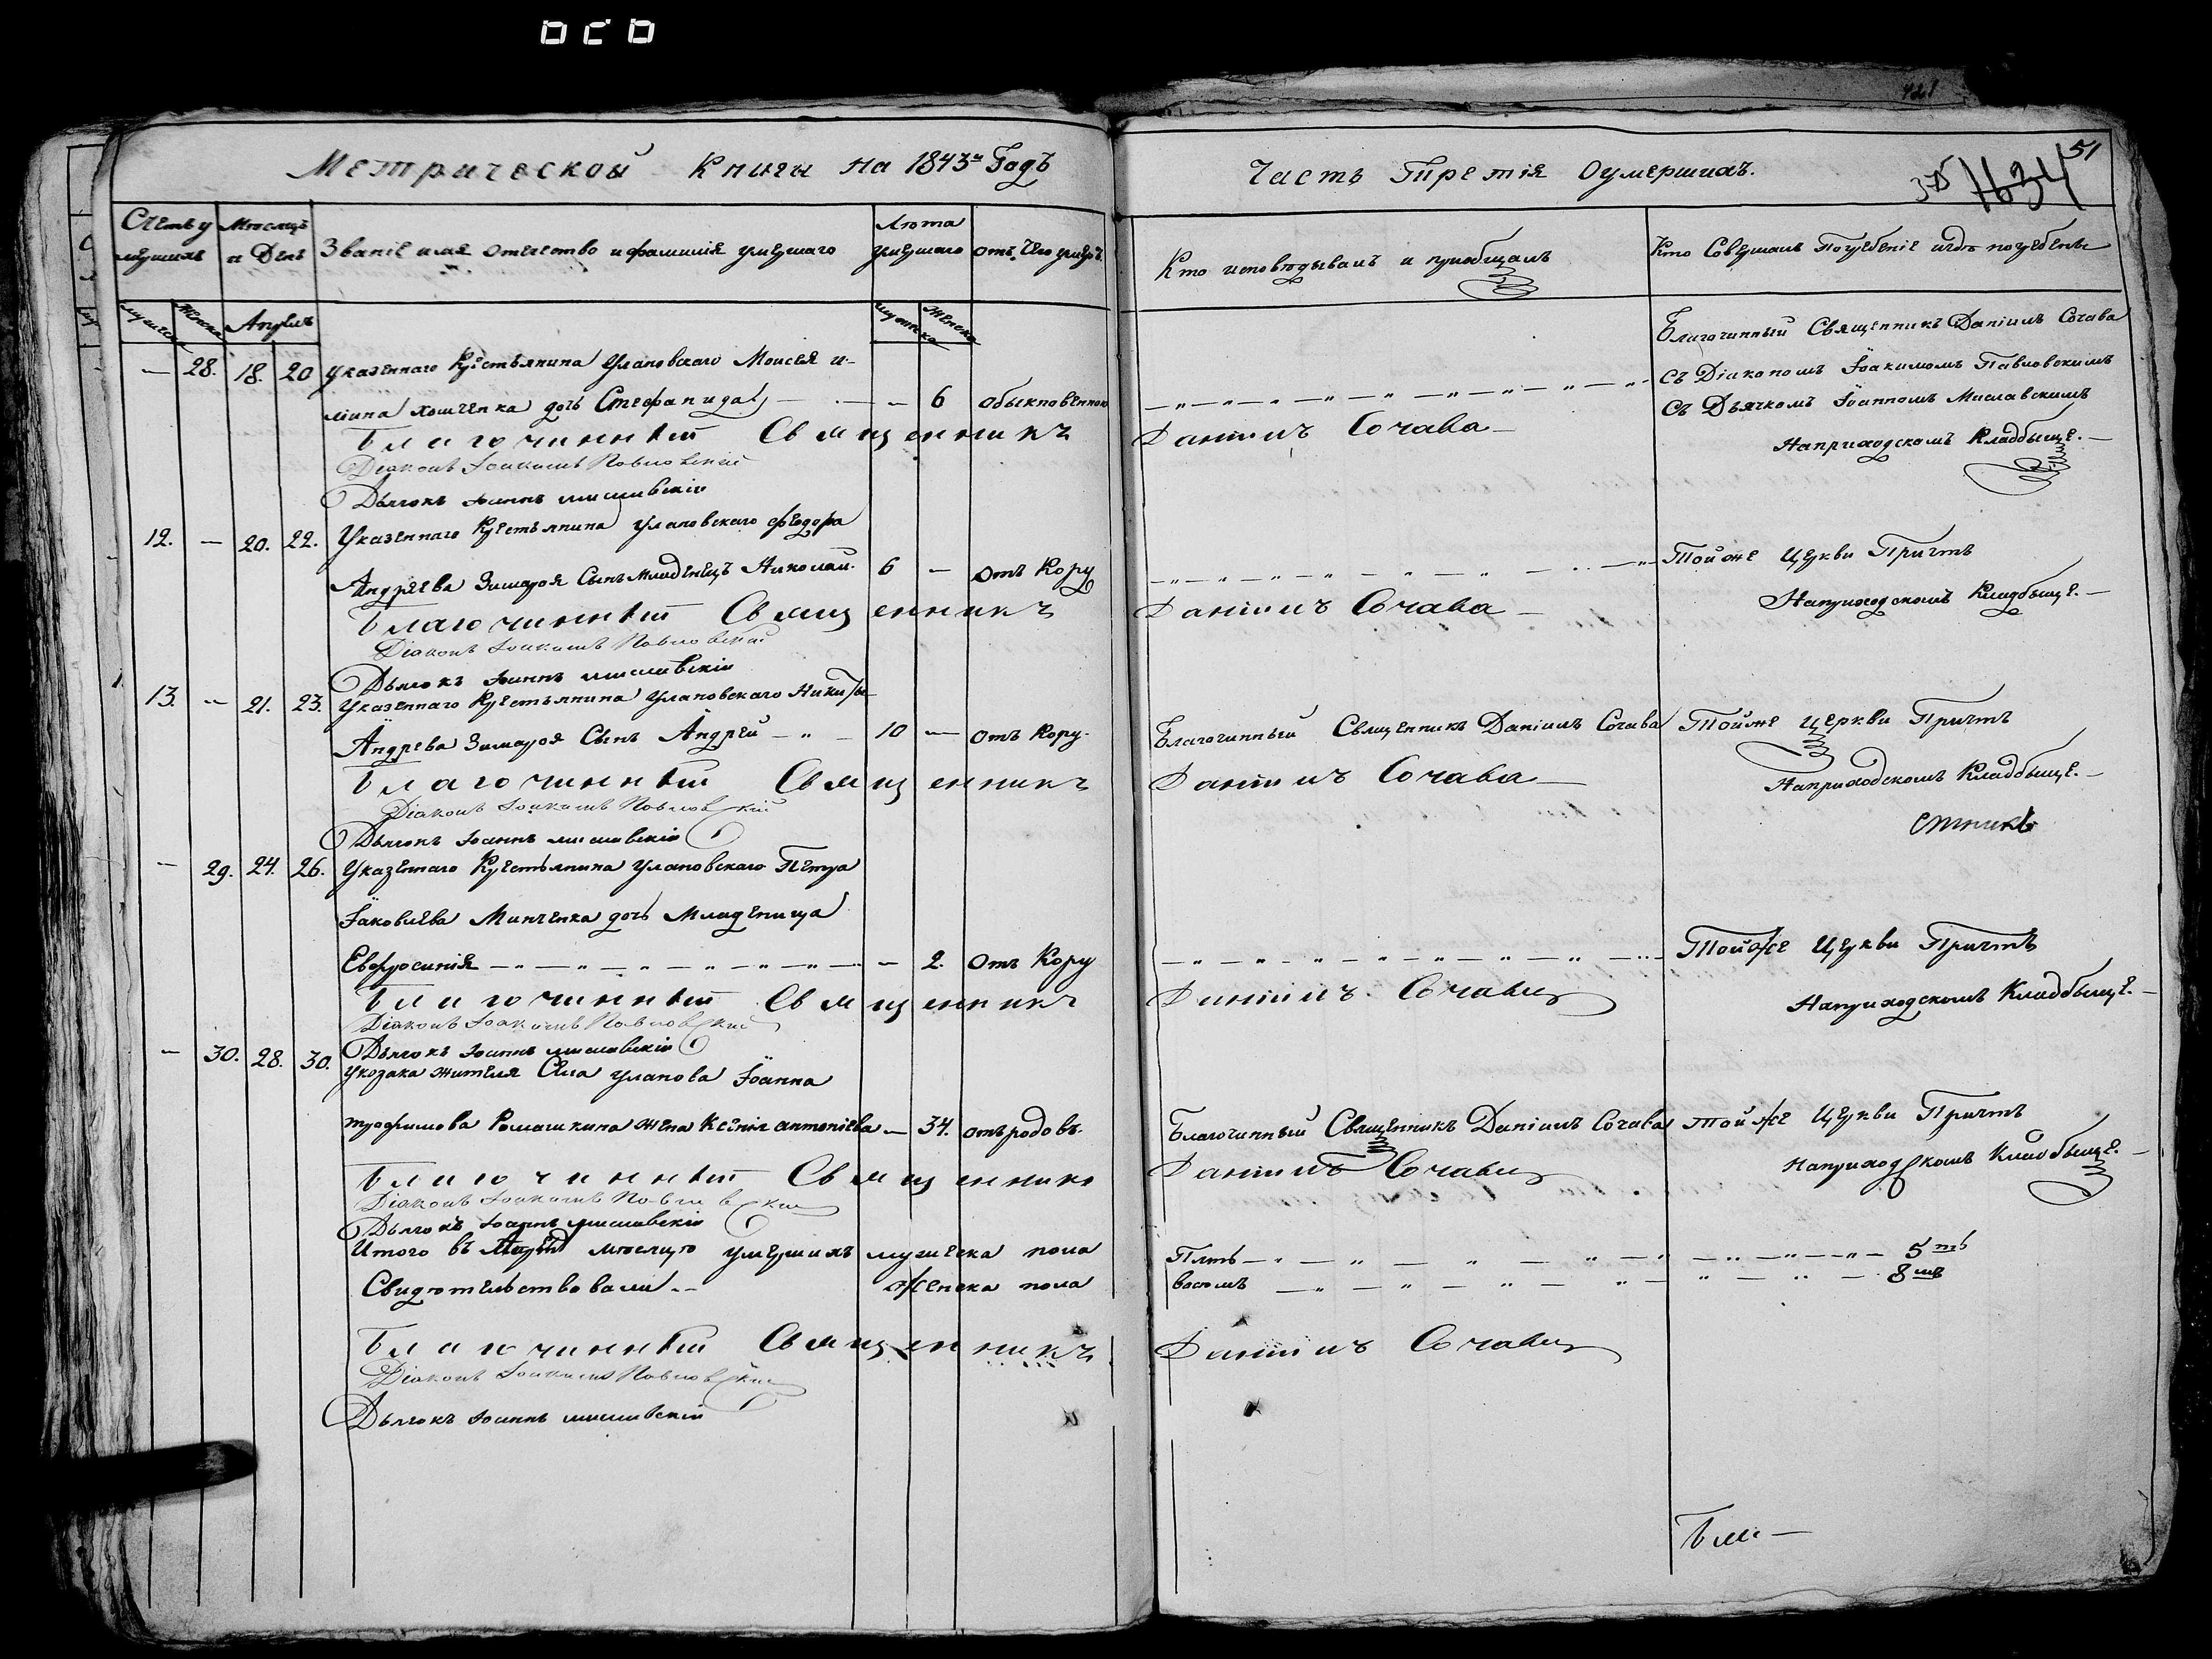 421
51
375 1634
Метрической Книги на 1843й Годъ
Часть Третія Оумершихъ.
Счетъ умершихъ
Мѣсяцъ и День
Званіе имя отчество и фамилія умершаго
Лѣта умершаго
отъ чего умеръ
Кто исповѣдывалъ и пріобщалъ
Кто Совершалъ Погребеніе и гдѣ погребены
мужеска женска
Апрель
мужеска женска
— 28. 18. 20 Указеннаго Крестьянина Улановскаго Моисея
дочь Стефанида — — 6 обыкновенною
Благочинный Священникъ Даніилъ Сочава
Съ Діакономъ Іоакимомъ Павловскимъ
Съ Дьячкомъ Іоанномъ Миславскимъ
На приходскомъ Кладбыще.—
Благочинный Священникъ Даніилъ Сочава—
Діаконъ Іоакимъ Павловскій
Дьячокъ Іоаннъ Миславскій
12. — 20. 22. Указеннаго Крестьянина Улановскаго Феодора
Андреева Зимароя Сынъ Младенецъ Николай. 6 — отъ Кору
Той же Церкви Причтъ
На приходскомъ Кладбыще.—
Благочинный Священникъ Даніилъ Сочава—
Діаконъ Іоакимъ Павловскій
Дьячокъ Іоаннъ Миславскій
13. — 21. 23. Указеннаго Крестьянина Улановскаго Никиты
Андрева Зимароя Сынъ Андрей — 10 — отъ Кору.
Благочинный Священникъ Даніилъ Сочава
Той же Церкви Причтъ
На приходскомъ Кладбыще.—
Благочинный Священникъ Даніилъ Сочава—
Діаконъ Іоакимъ Павловскій
Дьячокъ Іоаннъ Миславскій
— 29. 24. 26. Указеннаго Крестьянина Улановскаго Петра
Іаковлева Минченка дочь Младеница
Евфросинія — — 2. отъ Кору
Той же Церкви Причтъ
На приходскомъ Кладбыще.—
Благочинный Священникъ Даніилъ Сочава
Діаконъ Іоакимъ Павловскій
Дьячокъ Іоаннъ Миславскій
— 30. 28. 30. Укозака жителя Села Уланова Іоанна
Трофимова Ромашкина жена Ксенія Антоніева — 34. отъ родовъ.
Благочинный Священникъ Даніилъ Сочава
Той же Церкви Причтъ
На приходскомъ Кладбыще.—
Благочинный Священникъ Даніилъ Сочава
Діаконъ Іоакимъ Павловскій
Дьячокъ Іоаннъ Миславскій
Итого въ мѣсяцѣ умершихъ мужеска пола Пять — 5ть
Свидѣтельствовали — женска пола восѣмъ — 8мъ
Благочинный Священникъ Даніилъ Сочава
Діаконъ Іоакимъ Павловскій
Дьячокъ Іоаннъ Миславскій